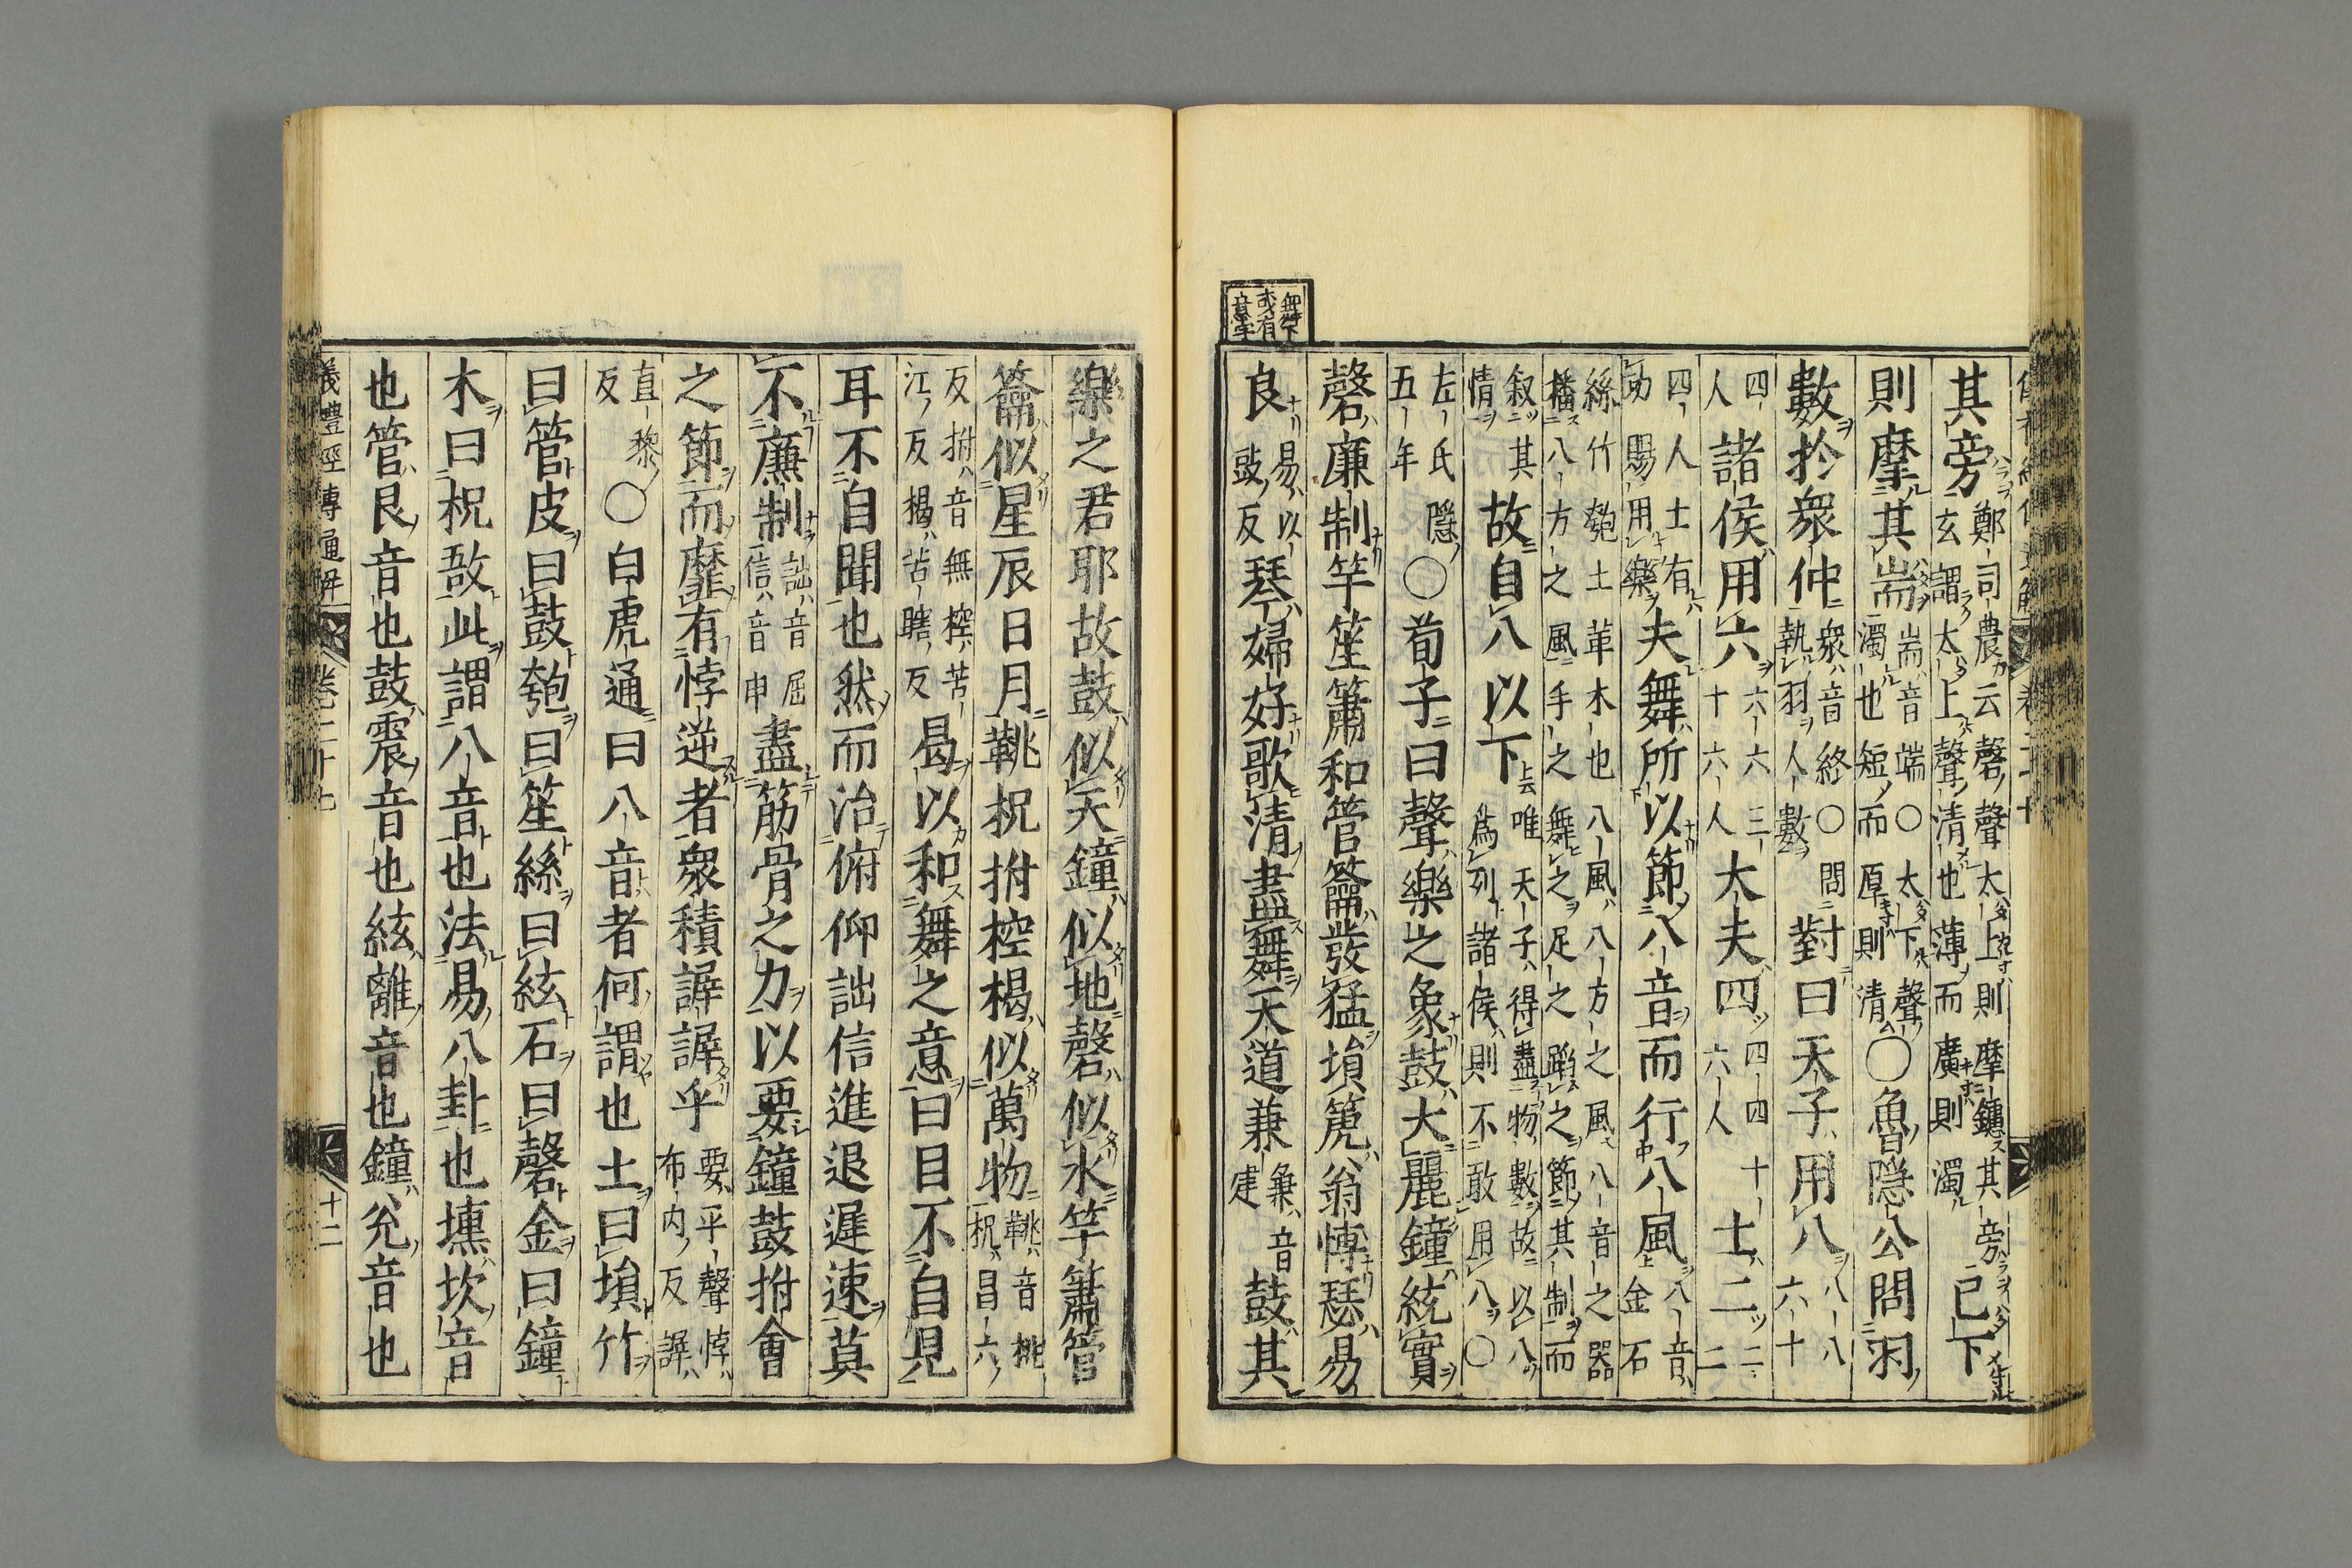 其旁鄭司農云磬聲太上則摩鑢其旁玄謂太上聲清也薄而廣則濁已下
則摩其耑耑音端○太下聲濁也短而厚則清○魯隱公問羽
數於衆仲衆音終○問執羽人數對曰天子用八八八六十
四人諸侯用六六六三十六人大夫四四四十六人士二二二
四人士有功賜用樂夫舞所以節八音而行八風八音金石
絲竹匏土革木也八風八方之風八音之器播八方之風手之舞之足之蹈之節其制而
叙其情故自八以下唯天子得盡物數故以八爲列諸侯則不敢用八○
左氏隱五年○荀子曰聲樂之象鼓大麗鐘統實
磬廉制竽笙簫和管籥發猛塤箎翁博瑟易
良易以豉反琴婦好歌清盡舞天道兼兼音建鼓其
舞下或有意字
樂之君耶故鼓似天鐘似地磬似水竽簫管
籥似星辰日月鞉柷拊椌楬似萬物鞉音桃柷昌六
反拊音無椌苦江反楬苦瞎反曷以和舞之意曰目不自見
耳不自聞也然而治俯仰詘信進退遲速莫
不廉制詘音屈信音申盡筋骨之力以要鐘鼓拊會
之節而靡有悖逆者衆積謘謘乎要平聲悖布内反謘
直黎反○白虎通曰八音者何謂也土曰塤竹
曰管皮曰鼓匏曰笙絲曰絃石曰磬金曰鐘
木曰柷敔此謂八音也法易八卦也壎坎音
也管艮音也鼓震音也絃離音也鐘兌音也
義豊經傳通解 卷二十七 十二